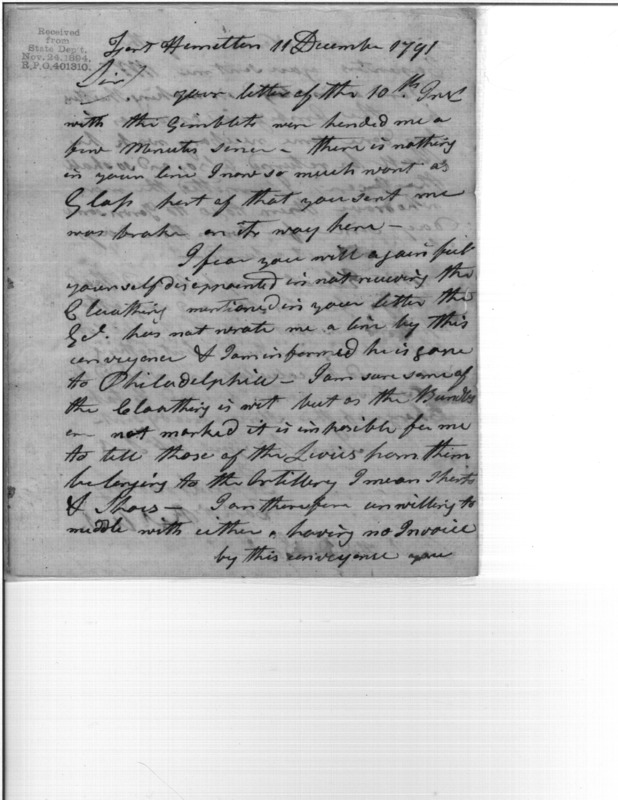 Received
from
State Dep't.
Nov. 24. 1894.
R.P.O. 401310.
Fort Hamelton 11 December 1791
Sir/
your letter of the 10th. Inst
with the Gimblets were handed me a
few Minutes since - there is nothing
in your line I now so much want as
Glass part of that you sent me
was broke on its way here -
I fear you will again feel
yourself disappointed in not receiving the
Cloathing mentioned in your letter the
has not wrote me a line by this
conveyance & I am informed he is gone
to Philadelphia - I am sure some of
the Cloathing is wet but as the Bundles
are not marked it is imposible for me
to tell those of the Levies from them
belonging to the Artillery I mean Shirts
& Shoes - I am therefore unwilling to
meddle with either, having no Invoice
by this conveyance you